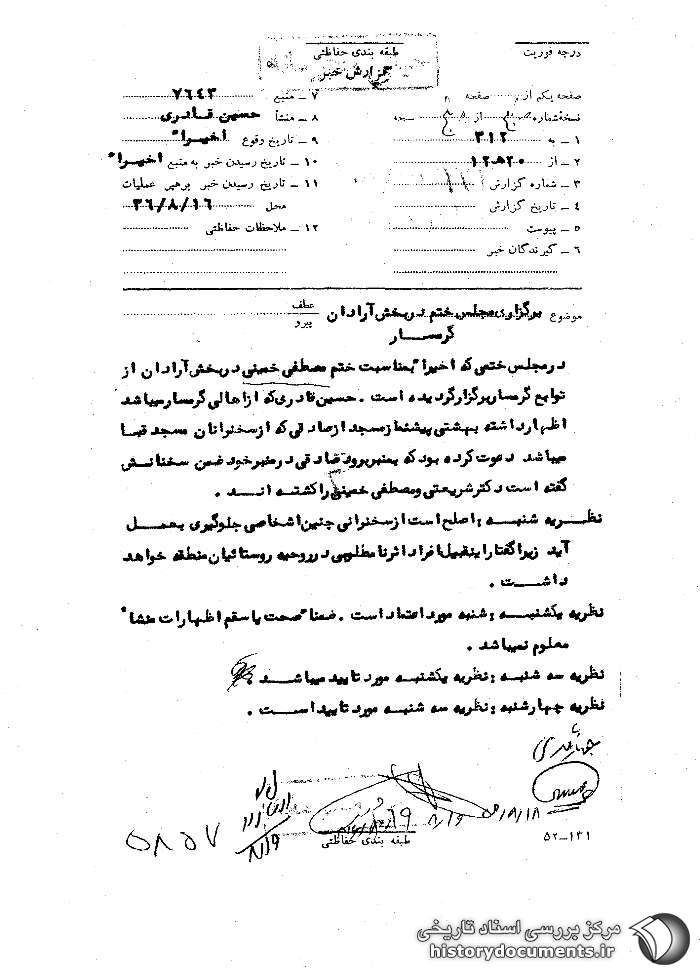 درجه فوریت
طبقه بندی حفاظتی
گزارش خبر
صفحه یکم از ۱ صفحه
نسخه شماره از نسخه
۱ – به ۳۱۲
۲ – از ۱۲ه۲۰
۳ – شماره گزارش
۴ – تاریخ گزارش
۵ – پیوست
۶ – گیرندگان خبر
۷ – منبع ۷۶۴۳
۸ – منشأ حسین قادری
۹ – تاریخ وقوع اخیرا"
۱۰ – تاریخ رسیدن خبر به منبع اخیرا"
۱۱ – تاریخ رسیدن خبر برهبر عملیات
محل ۳۶/۸/۱۶
۱۲ – ملاحظات حفاظتی
موضوع برگزاری مجلس ختم در بخش آرادان
عطف
پیرو
گرمسار
در مجلس ختمی که اخیرا" بمناسبت ختم مصطفی خمینی در بخش آرادان از
توابع گرمسار برگزار گردیده است . حسین قادری که از اهالی گرمسار میباشد
اظهار داشته بهشتی پیشنماز مسجد از صادقی که از سخنرانان مسجد قبا
میباشد دعوت کرده بود که بمنبر برود صادقی در منبر خود ضمن سخنانش
گفته است دکتر شریعتی و مصطفی خمینی را کشته اند .
نظریه شنبه : اصلح است از سخنرانی چنین اشخاصی جلوگیری بعمل
آید زیرا گفتار اینقبیل افراد اثر نامطلوبی در روحیه روستائیان منطقه خواهد
داشت .
نظریه یکشنبه : شنبه مورد اعتماد است . ضمنا" صحت یا سقم اظهارات منشا"
معلوم نمیباشد .
نظریه سه شنبه : نظریه یکشنبه مورد تایید میباشد .
نظریه چهارشنبه : نظریه سه شنبه مورد تایید است .
۸/۱۹
طبقه بندی حفاظتی
۵۲–۱۳۱
۵۸۵۷
مرکز بررسی اسناد تاریخی
historydocuments.ir